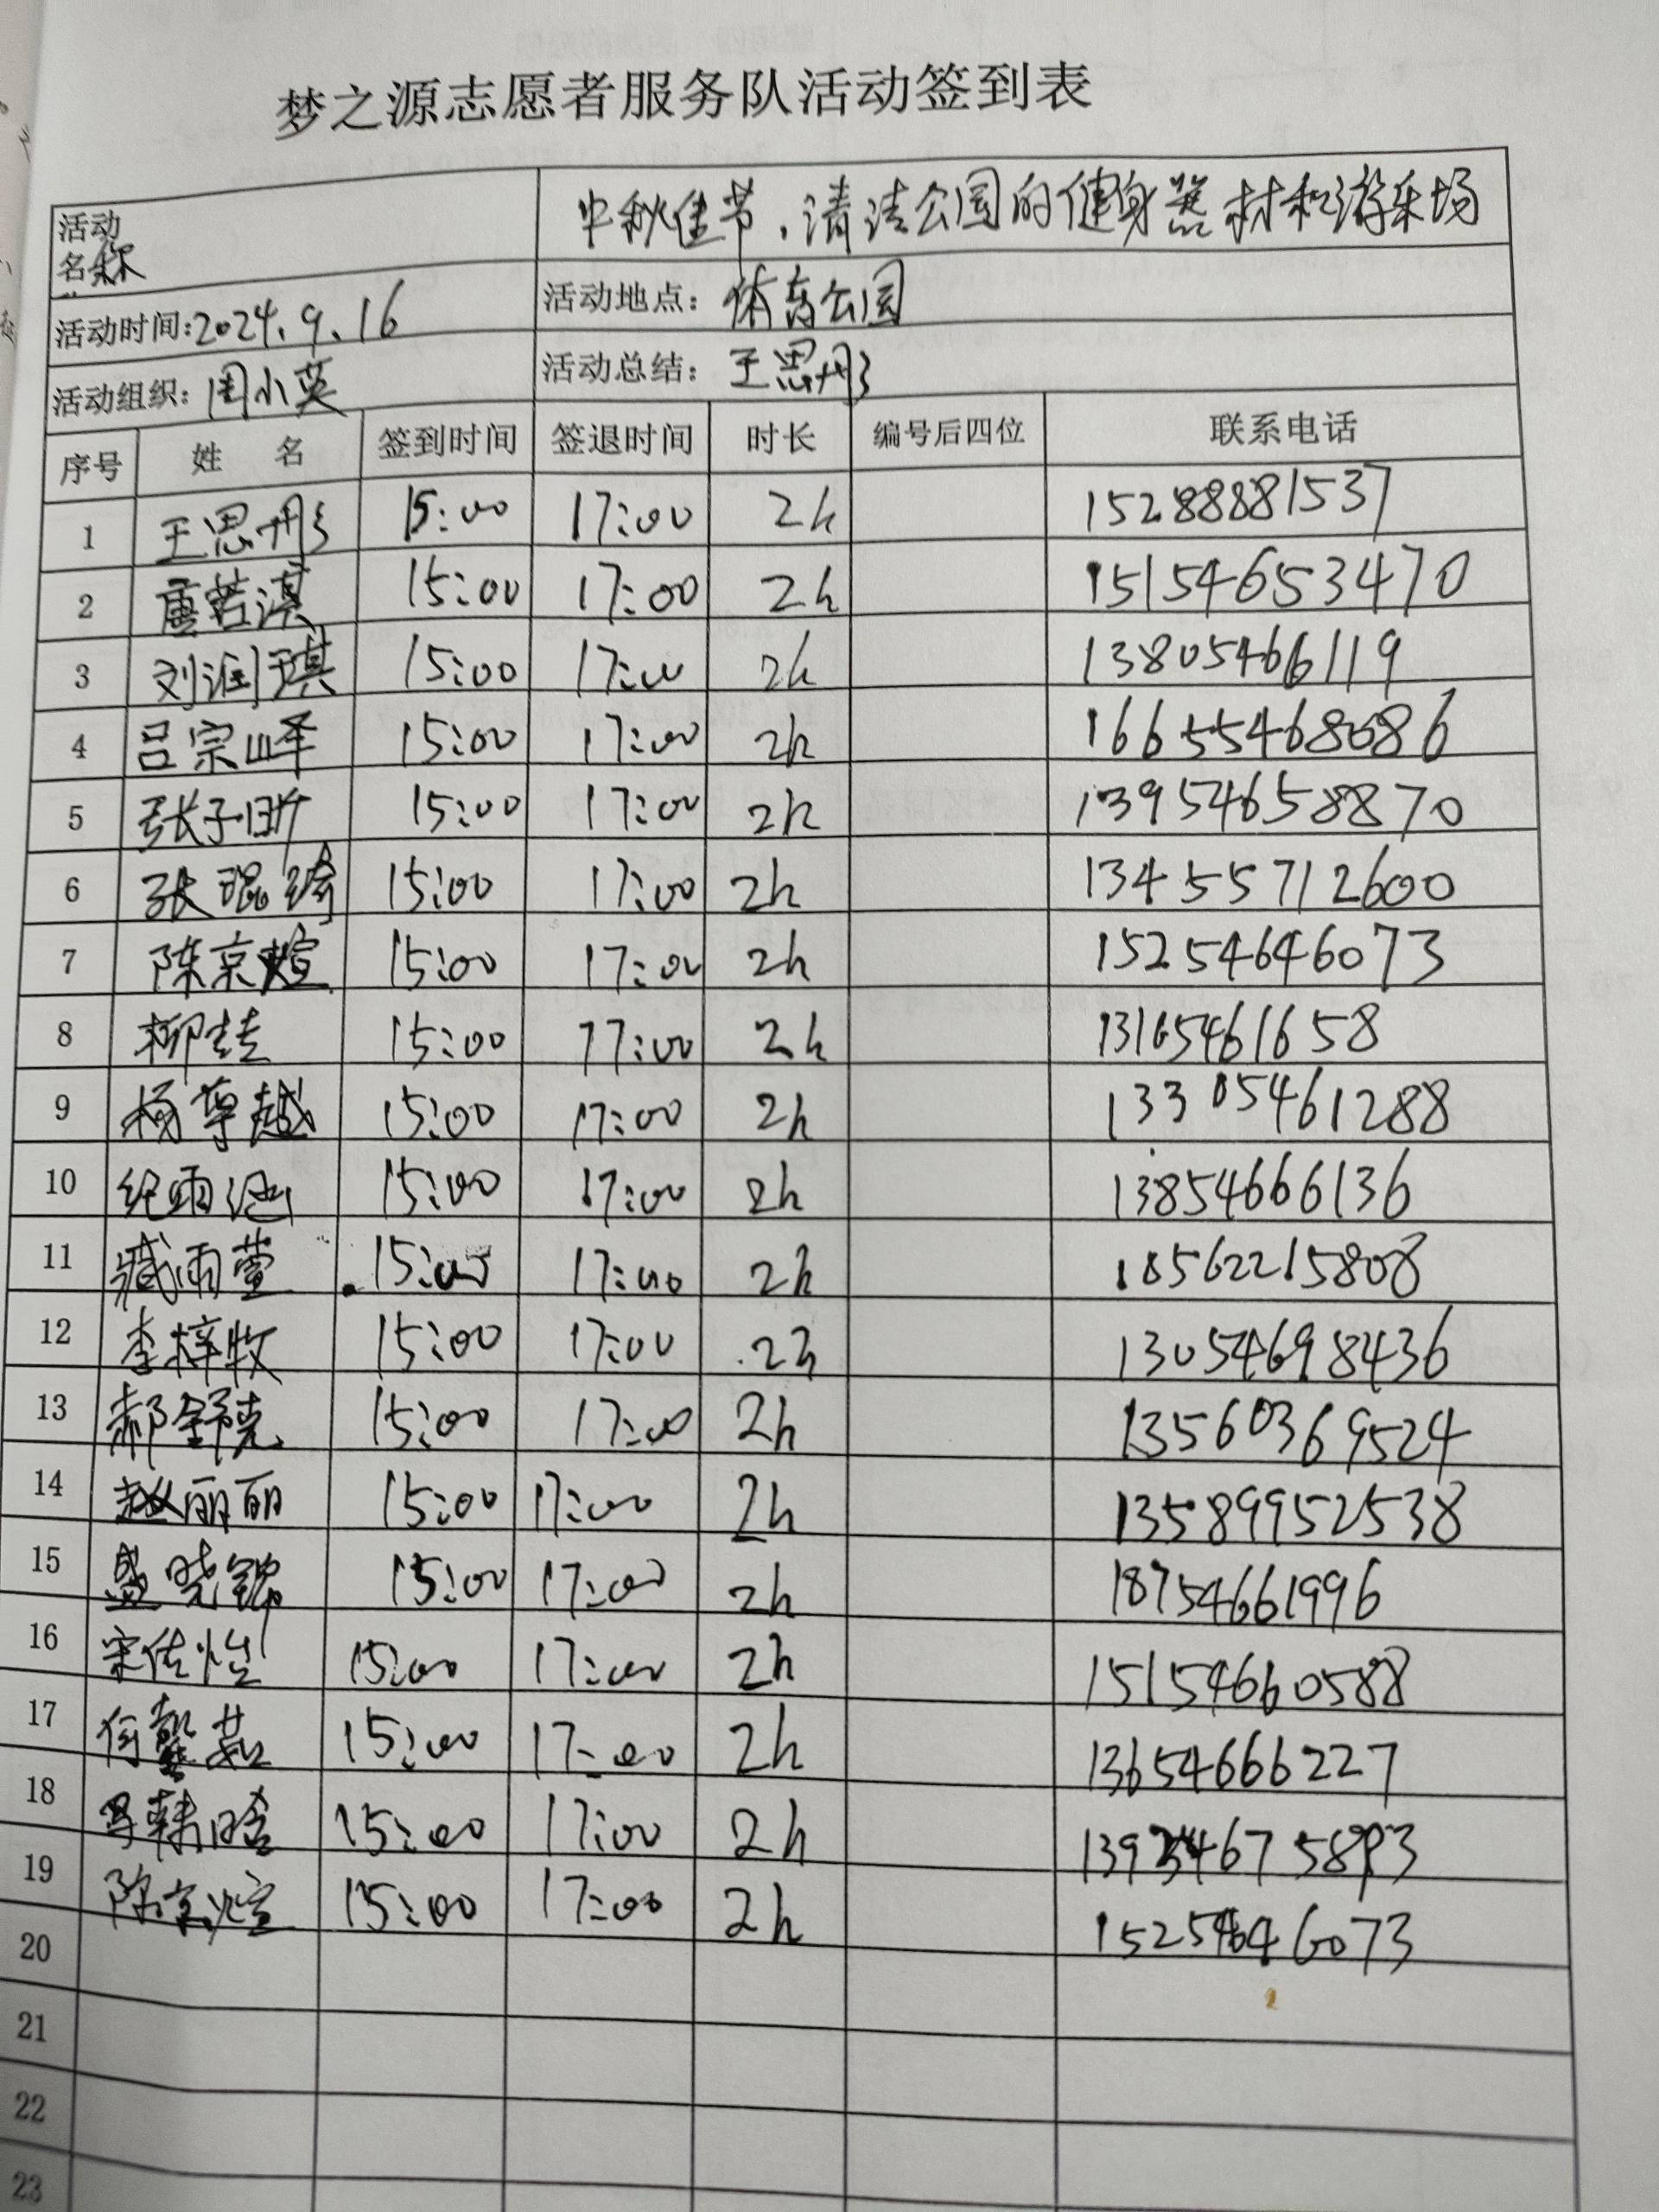 梦之源志愿者服务队活动签到表
活动名称 中秋佳节，清洁公园的健身器材和游乐场
活动时间:2024.9.16 活动地点: 体育公园
活动组织: 周小英 活动总结: 王思彤
序号 姓 名 签到时间 签退时间 时长 编号后四位 联系电话
1 王思彤 15:00 17:00 2h 15288881537
2 童若淇 15:00 17:00 2h 15154653470
3 刘润琪 15:00 17:00 2h 13805466119
4 吕宗峄 15:00 17:00 2h 16655468686
5 张子昕 15:00 17:00 2h 13954658870
6 张琨绮 15:00 17:00 2h 13455712600
7 陈京煊 15:00 17:00 2h 15254646073
8 柳婕 15:00 17:00 2h 13165461658
9 杨尊越 15:00 17:00 2h 13305461288
10 纪雨涵 15:00 17:00 2h 13854666136
11 臧雨萱 15:00 17:00 2h 18562215808
12 李梓牧 15:00 17:00 2h 13054698436
13 郝舒克 15:00 17:00 2h 13560369524
14 赵丽丽 15:00 17:00 2h 13589952538
15 盛晓锦 15:00 17:00 2h 18754661996
16 宋佐怡 15:00 17:00 2h 15154660588
17 何馨茹 15:00 17:00 2h 13654666227
18 韩晗 15:00 17:00 2h 5893
19 陈京煊 15:00 17:00 2h 15254646073
20
21
22
23